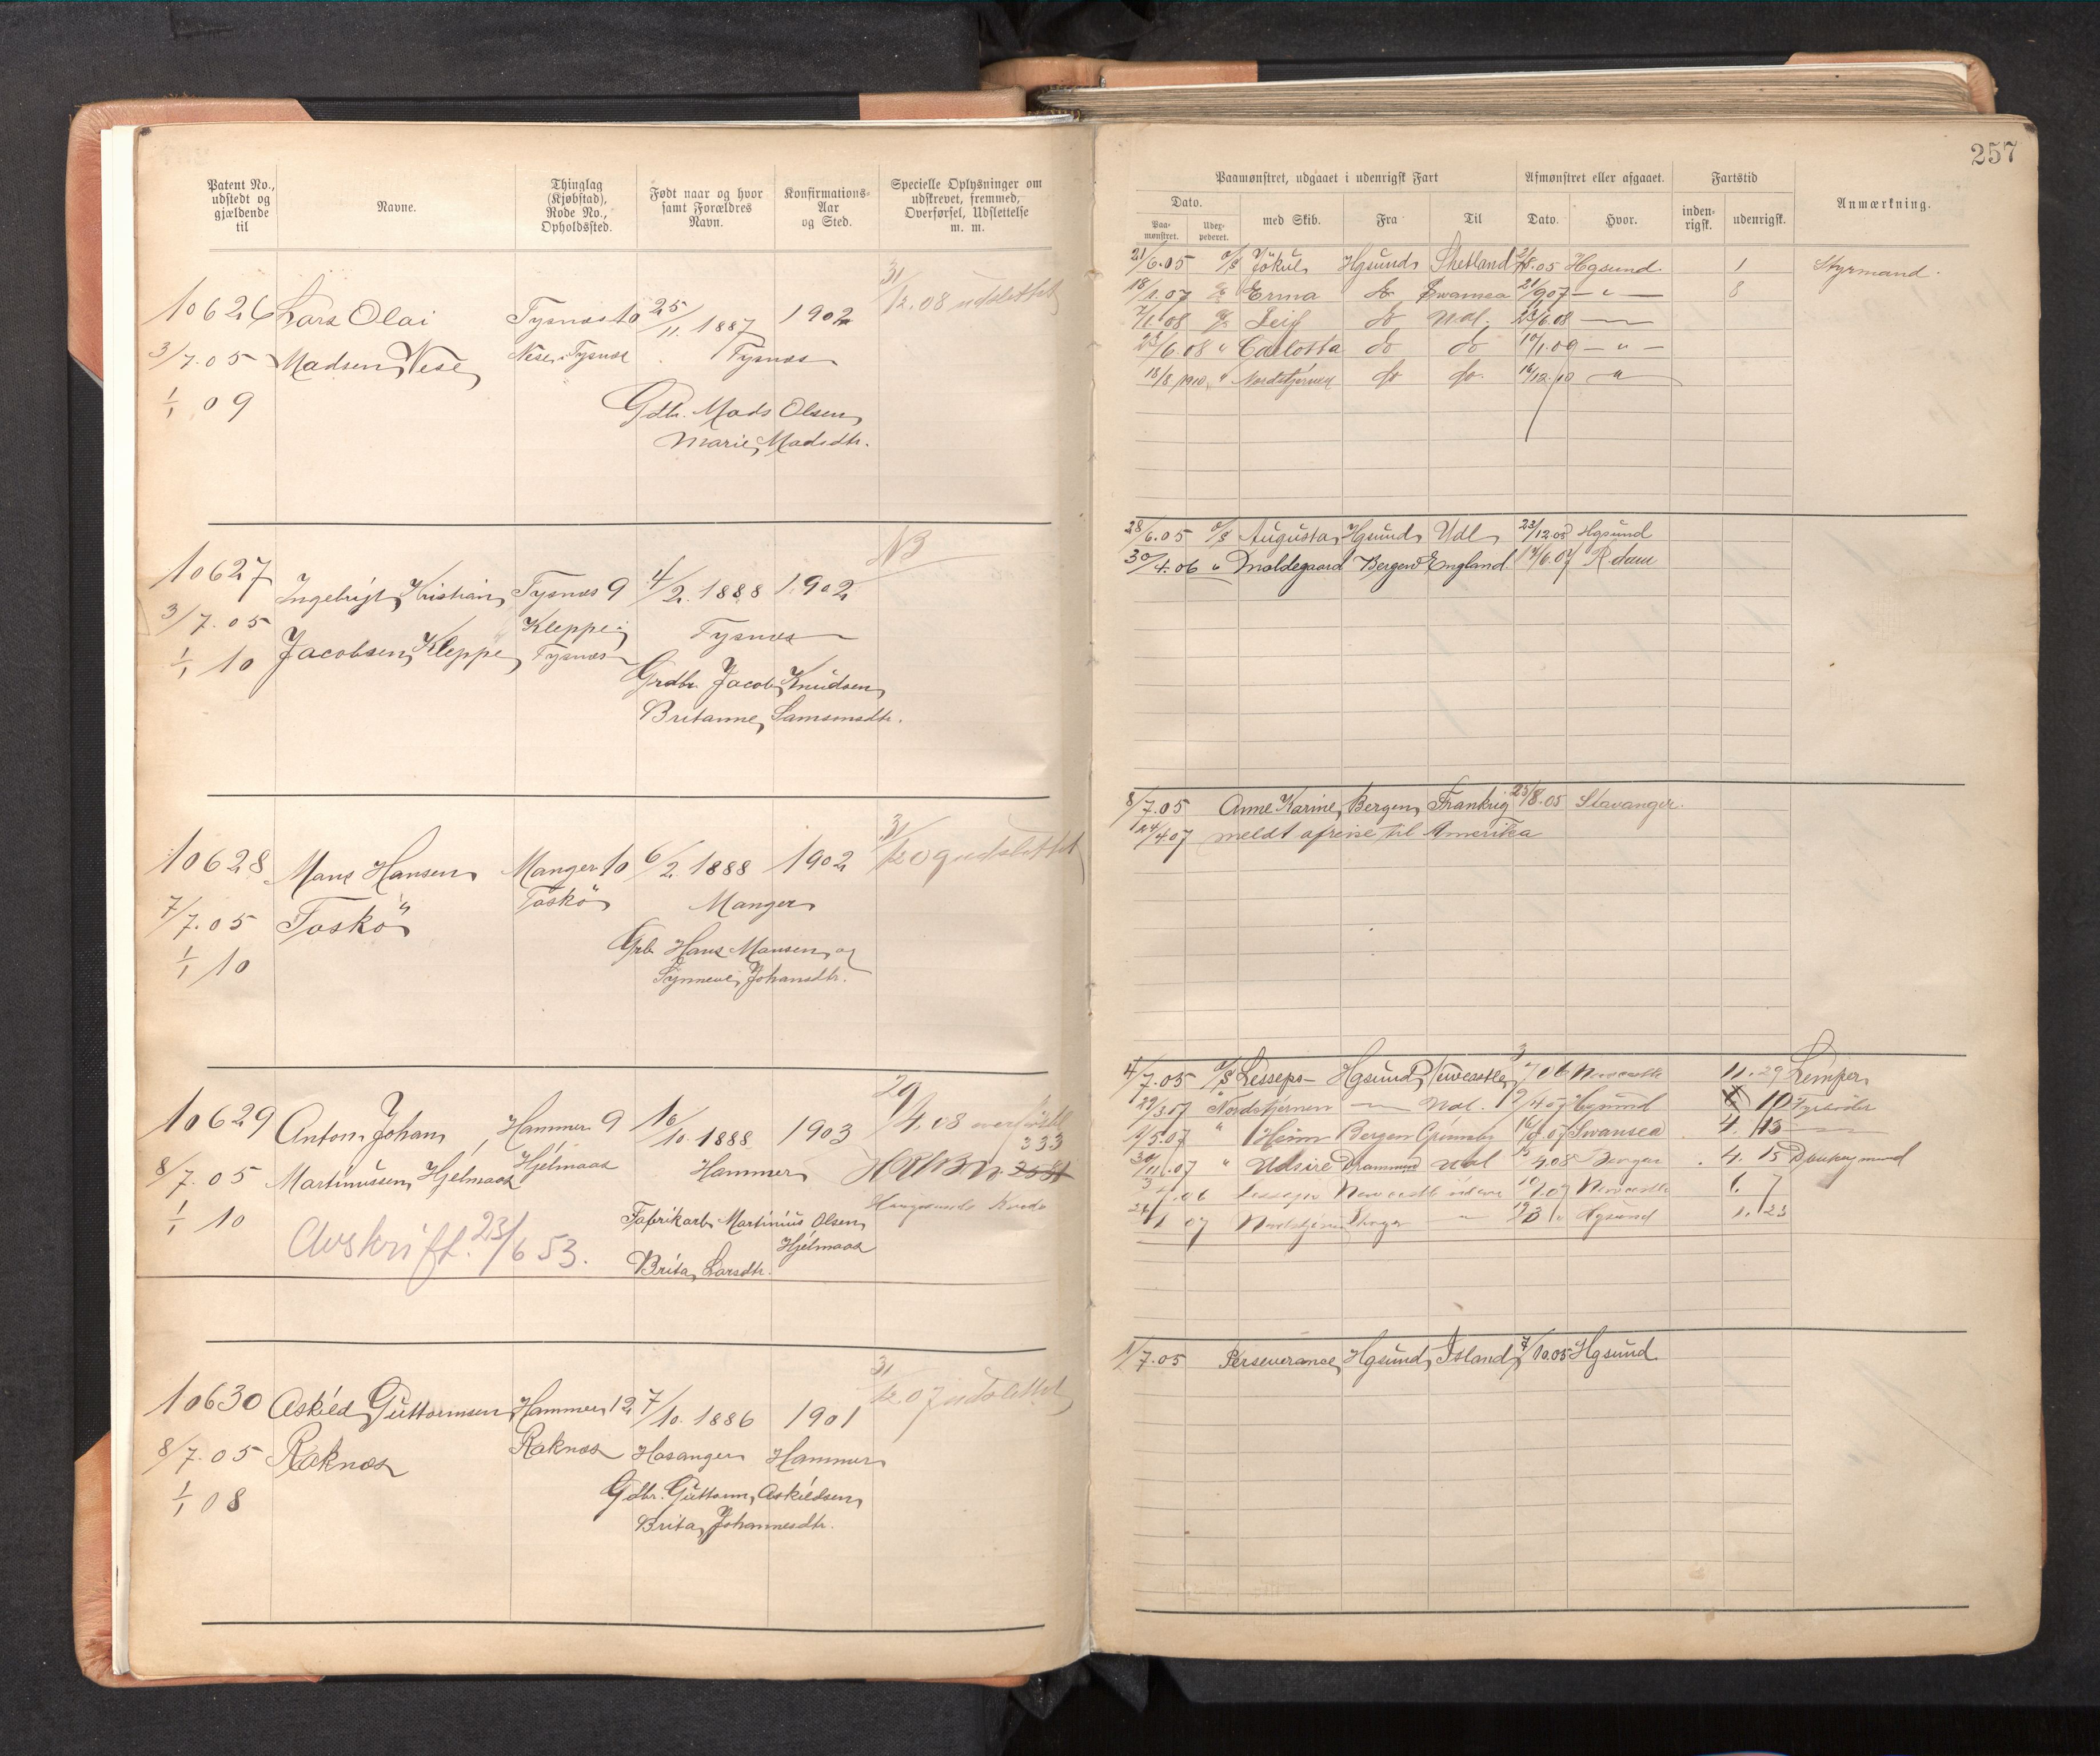 257
Patent No., udstedt og gjældende til
Navne.
Thinglag (Kjøbstad), Rode No., Opholdssted.
Født naar og hvor samt Forældres Navn.
Konfirmations-Aar og Sted.
Specielle Oplysninger om udskrevet, fremmed, Overførsel, Udslettelse m. m.
Paamønstret, udgaaet i udenrigsk Fart
Afmønstret eller afgaaet.
Fartstid
Anmærkning.
Dato.
Paa-mønstret.
med Skib.
Fra
Til
Dato.
Hvor.
inden-rigsk.
udenrigsk.
10626 Lars Olai Tysnes 10 25/11. 1887 1902 31/12.08 udslettet
3/7.05 Madsen Vese Tysnes Tysnes
1/1 09
Gdbr. Mads Olsen,
Marie Madsdtr.
21/6.05 Jökul Hgsund Shetland 8.05 Hgsund 1 Styrmand.
18/1.07 Erma do Swansea 21/9 07 — " — 8
7/1.08 Leif do Udl. 23/6 08 —
23/6.08 " Carlotta do do 10/1.09 — " —
18/8 1910 " Nordstjernen do do. 16/12.10 "
10627 Ingebrigt Kristian Tysnes 9 4/2. 1888 1902 NB
3/7.05 Jacobsen Kleppe Kleppe Tysnes Tysnes
1/1 10
Grdbr. Jacob Knudsen,
Britanne Samsonsdtr.
28/6.05 Augusta Hgsund Udl 23/12.05 Hgsund
30/4.06 " Moldegaard Bergen England 6.07 R.dam
10628 Mans Hansen Manger 10 6/2. 1888 1902 31/12 09 udslettet
7/7.05 Toskö Toskö Manger
1/1 10
Grb. Hans Mansen og
Synneve Johansdtr.
8/7.05 Anne Karine, Bergen, Frankrig 25/8.05 Stavanger.
24/4 07 meldt afreise til Amerika
10629 Anton Johan Hammer 9 16/10. 1888 1903 29/4.08 overført
333
8/7.05 Martinussen Hjelmaas Hjelmaas Hammer
1/1 10
Haugesunds Kreds
Fabrikarb. Martinius Olsen
Hjelmaas
Brita Larsdtr.
Avskrift. 23/6 53.
4/7.05 Lesseps Hgsund Newcastle 06 Newcastle 11. 29 Lemper
22/3.07 Nordstjernen — Udl. 12/4 07 Hgsund 10 Fyrböder
5.07 " Heim Bergen Grimsby 07 Swansea 4. 13 —
30/11.07 " Udsire Drammen Udl 4.08 Bergen 4. 15 Donkeymand
06 Lesseps Newcastle 07 Newcastle 6. 7
1 07 Nordstjernen — " Hgsund 1. 23
10630 Askild Guttormsen Hammer 12 7/10. 1886 1901 31/12 07 udslettet
8/7.05 Raknes Raknes Hosanger Hammer
1/1 08
Gdbr. Guttorm Askildsen,
Brita Johannesdtr.
1/7.05 Perseverance, Hgsund, Island, 7/10.05 Hgsund